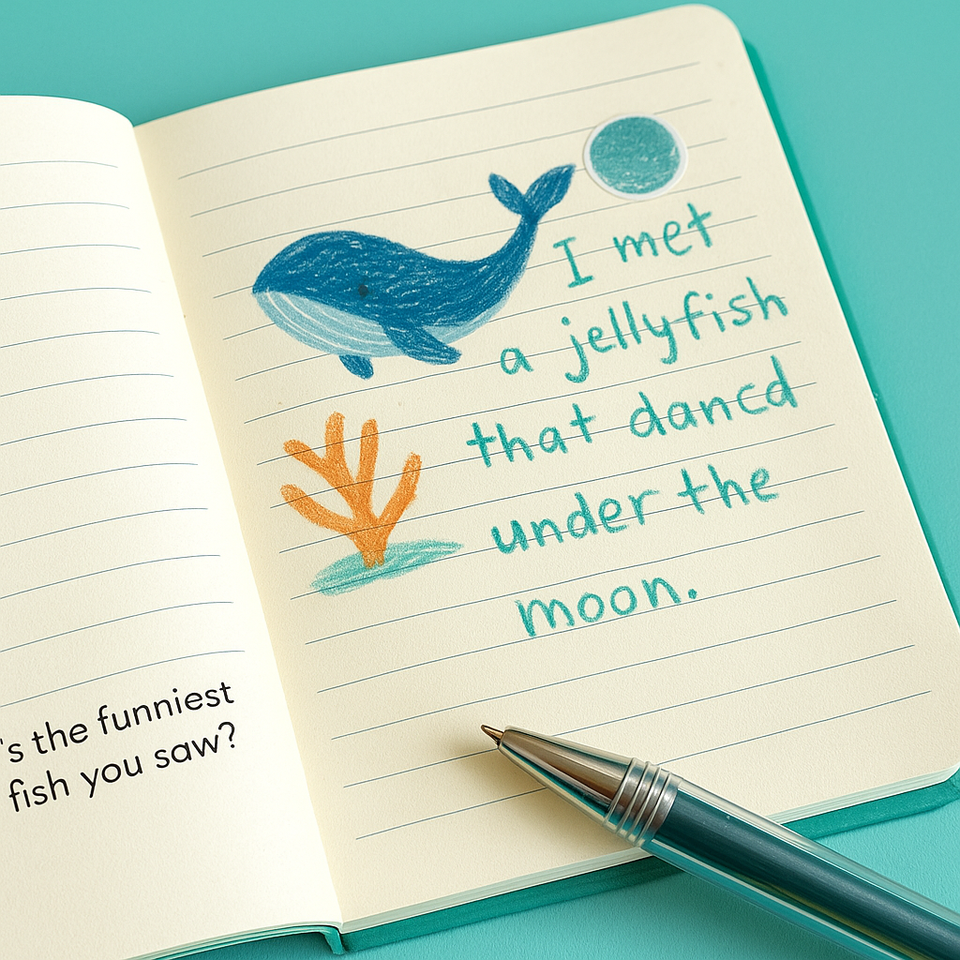 's the funniest
fish you saw?
I met
a jellyfish
that dancd
under the
moon.